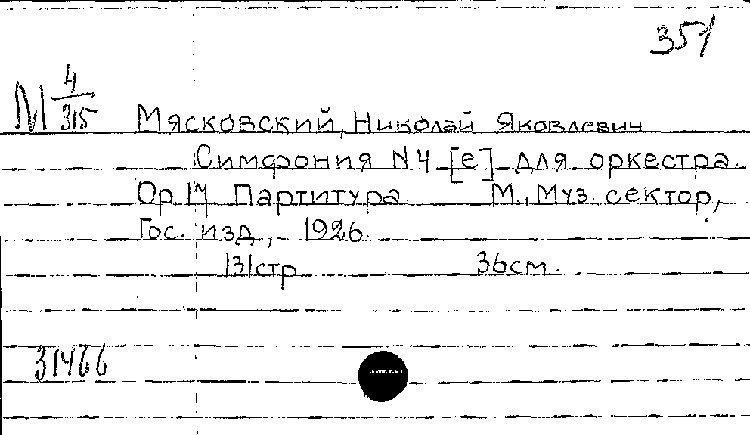 351
М 4/315
Мясковский, Николай Яковлевич
Симфония N4 [e] для оркестра.
Op 17 Партитура М., Муз. сектор,
Гос. изд., 1926.
131стр 36см.
31466